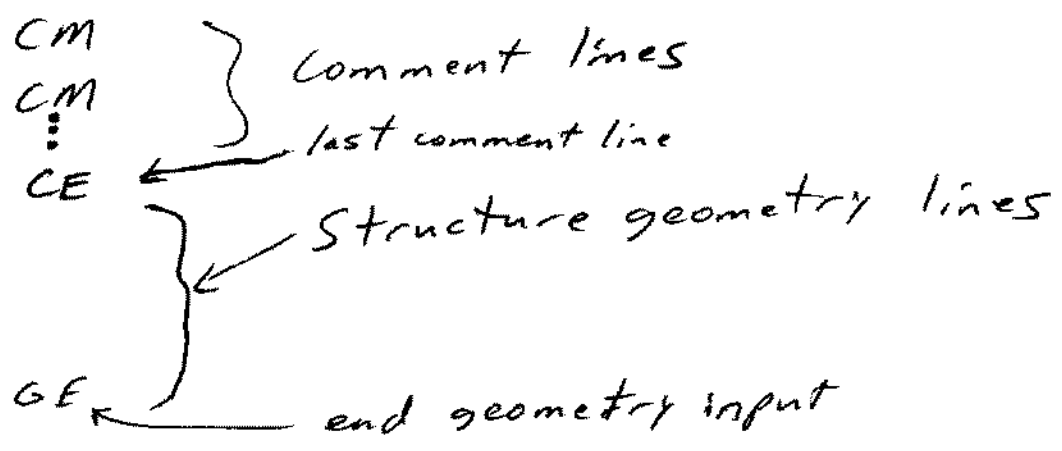 CM
Comment lines
CM
last comment line
CE
Structure geometry lines
GE
end geometry input